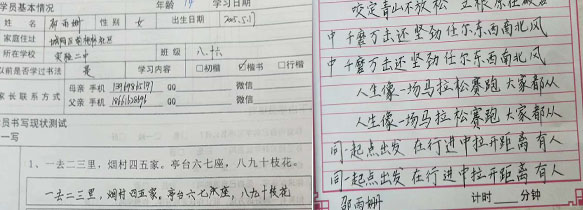 学员基本情况 年龄 14 学习日期
姓名 邵雨姗 性别 女 出生日期 2005.5.17
家庭住址
所在学校 实验二中 班级 八.十七
以前是否学过书法 是 学习内容 □初楷 ☑楷书 □行楷
家长联系方式 母亲 手机 QQ 微信
父亲 手机 QQ 微信
学员书写现状测试
一写
1、一去二三里，烟村四五家。亭台六七座，八九十枝花。
一去二三里，烟村四五家，亭台六七座，八九十枝花
咬定青山不放松 立根原在破岩
中 千磨万击还坚劲 任尔东西南北风
中 千磨万击还坚劲 任尔东西南北风
人生像一场马拉松赛跑 大家都从
人生像一场马拉松赛跑 大家都从
同一起点出发 在行进中拉开距离 有人
同一起点出发 在行进中拉开距离 有人
邵雨姗 计时 分钟